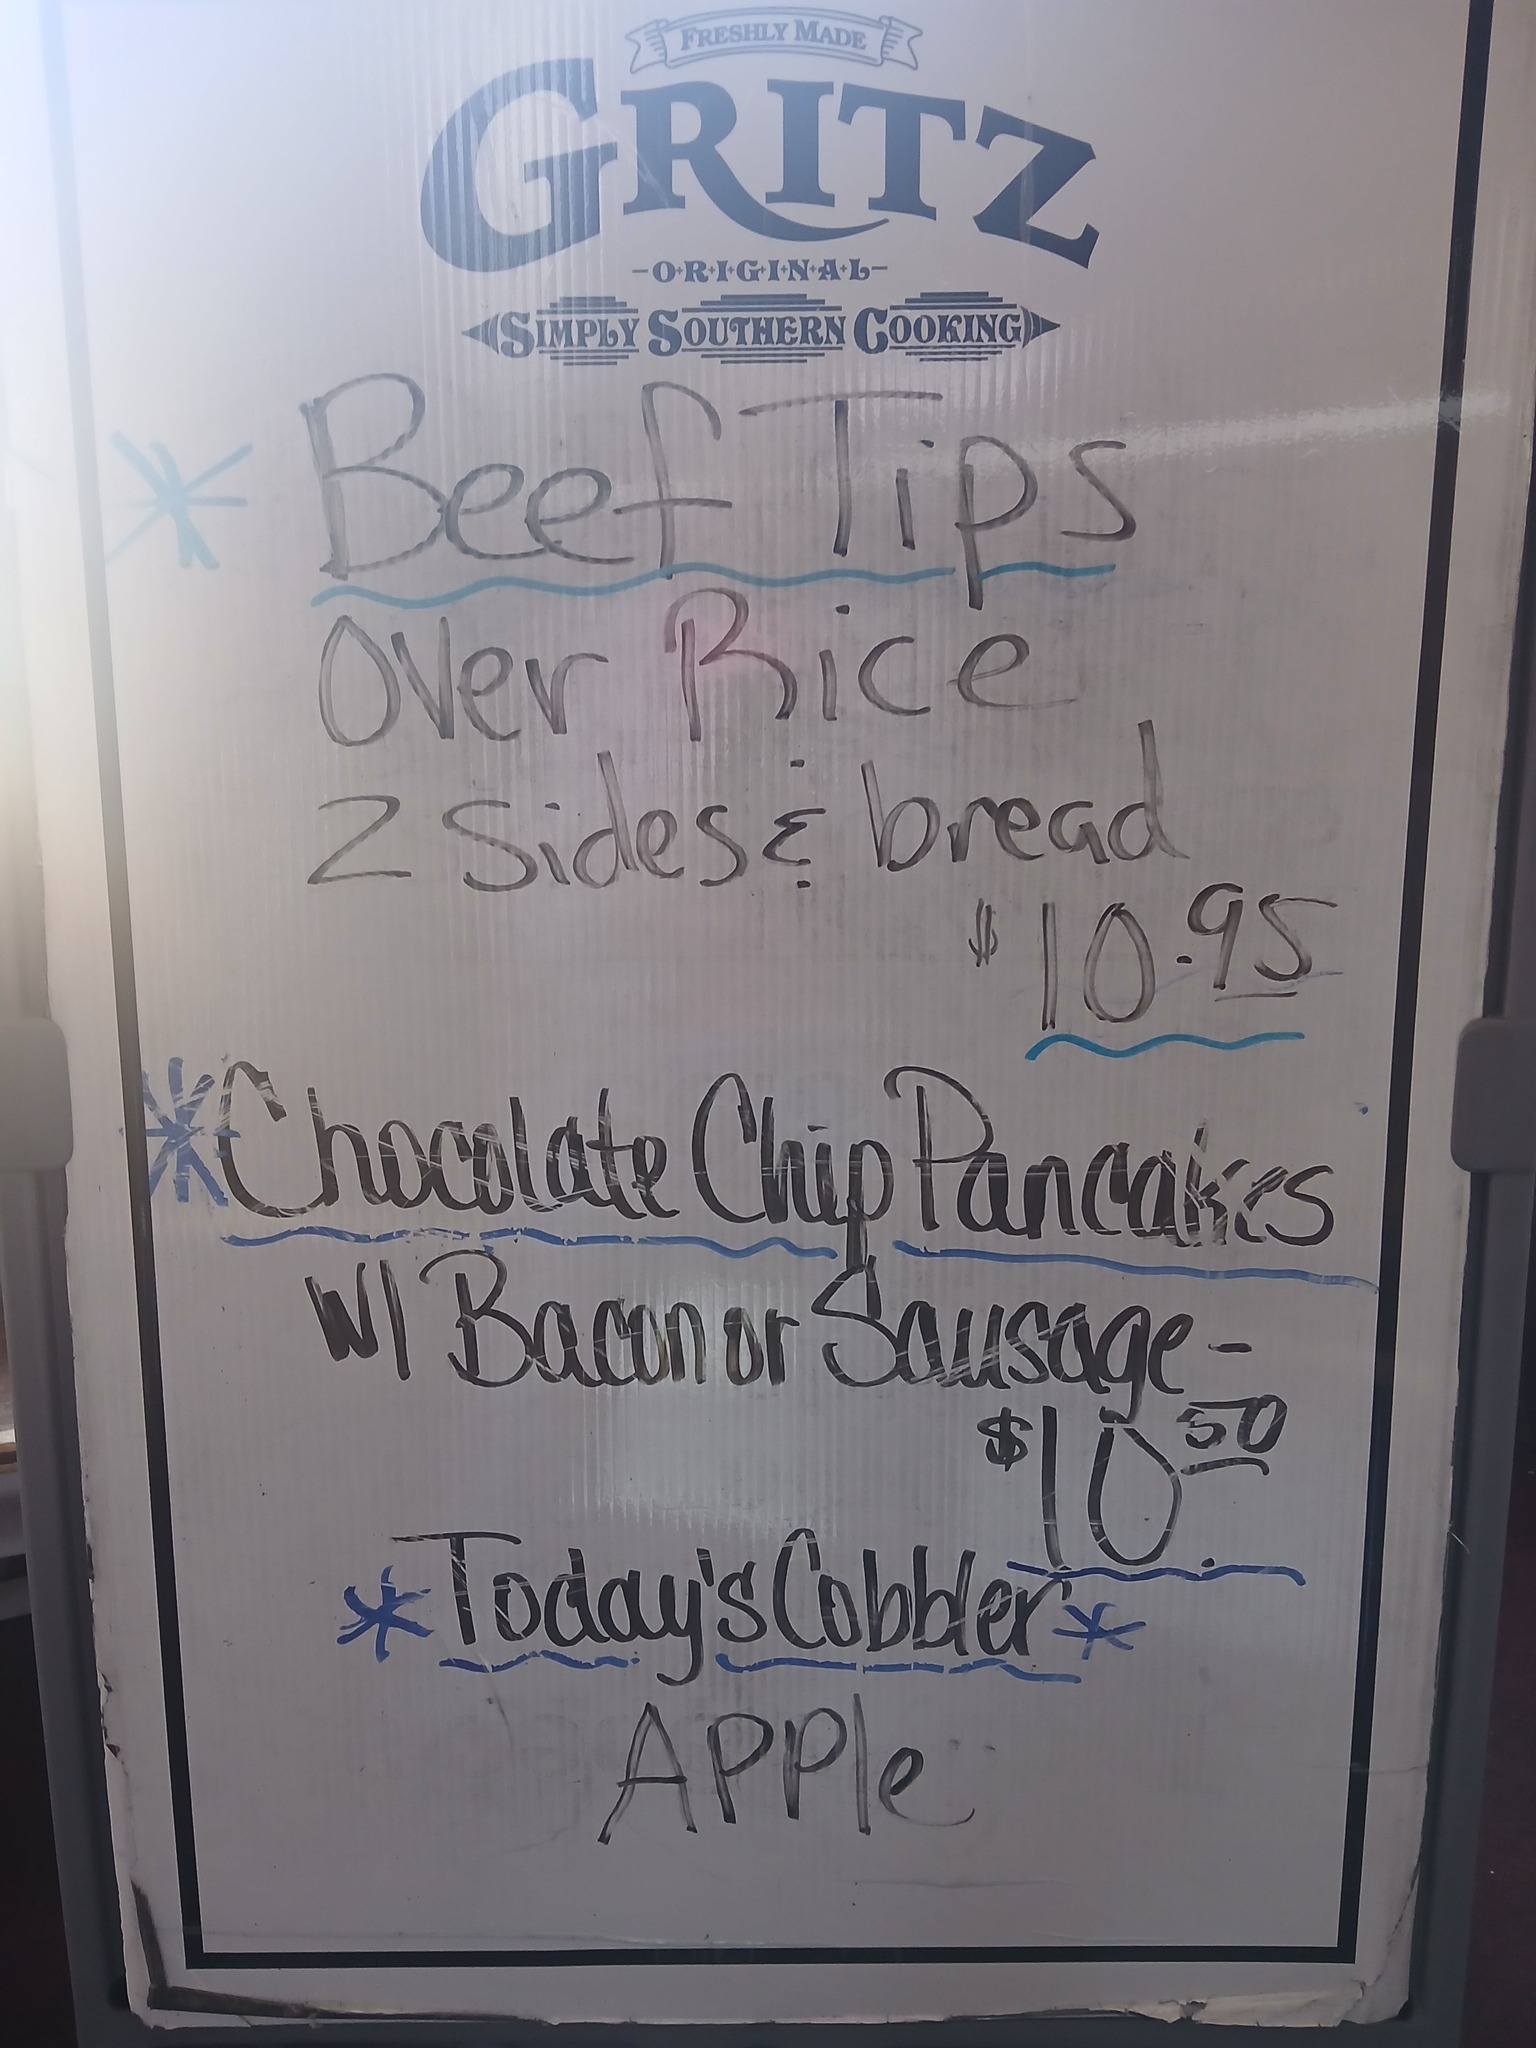 FRESHLY MADE
GRITZ
-O·R·I·G·I·N·A·L-
SIMPLY SOUTHERN COOKING
* Beef Tips
over Rice
2 sides & bread
$10.95
* Chocolate Chip Pancakes
W/ Bacon or Sausage -
$10.50
* Today's Cobbler *
APPle